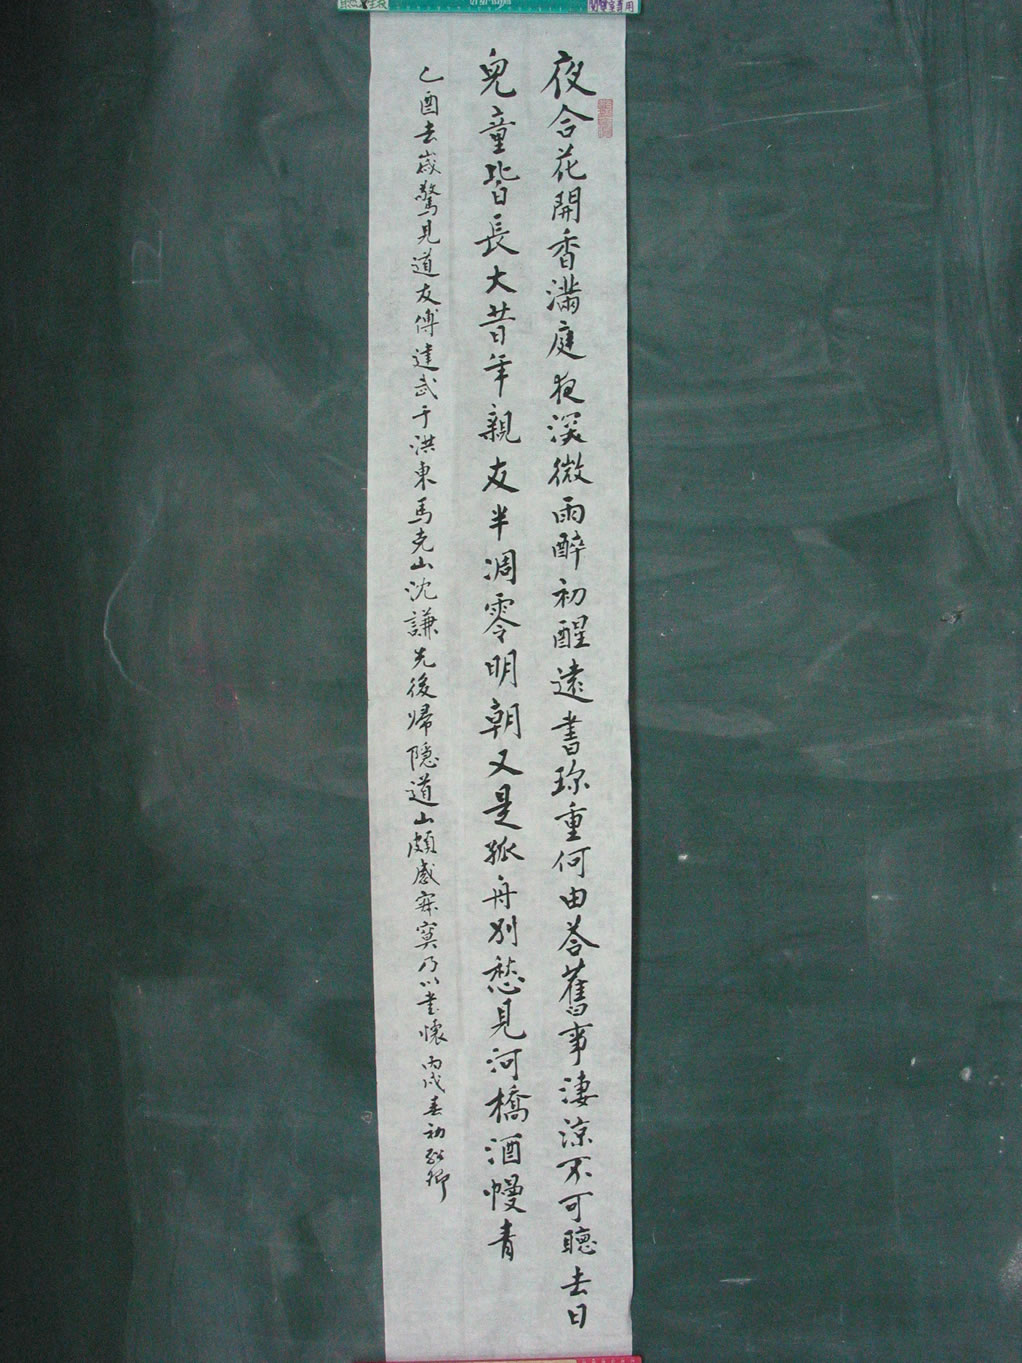 夜合花開香滿庭夜深微雨醉初醒遠書珍重何由荅舊事淒涼不可聽去日
兒童皆長大昔年親友半凋零明朝又是孤舟別愁見河橋酒幔青
乙酉去歲驚見道友傅達武于洪東馬克山沈謙先後歸隱道山頗感寂寞乃以書懷丙戌春初